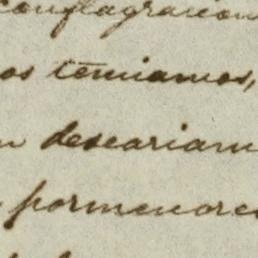 conflagracion
os temiamos,
deseariam
pormenores